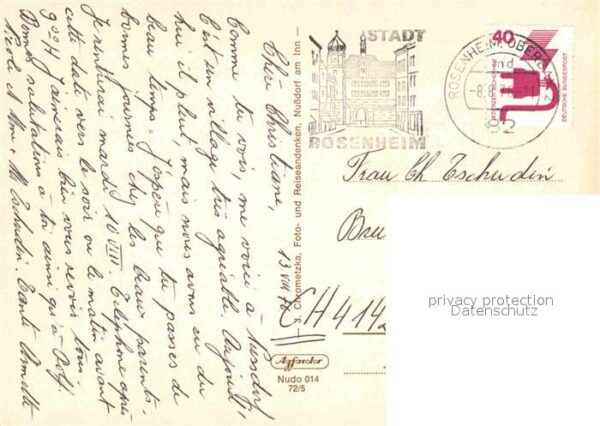 Chère Christiane,
13 VIII 77
Comme tu vois, me voici à Nussdorf
C'est un village très agréable. Aujourd'
hui il pleut, mais nous avons eu du
beau temps. J'espère que tu passes de
bonnes journées chez les beaux parents.
Je rentrerai mardi VIII. Téléphone après
cette date vers le soir ou le matin avant
9 00 H. J'aimerais bien vous revoir tous
Bonnes salutations à toi ainsi qu'à Rolf,
Nicole et Tschudin. Tante
J. Chrometzka, Foto- und Reiseandenken, Nußdorf am Inn
STADT
ROSENHEIM
ROSENHEIM, OBERB
40
DEUTSCHE BUNDESPOST
Frau Ch Tschudin
CH 4142
Agfacolor
Nudo 014
72/5
privacy protection
Datenschutz